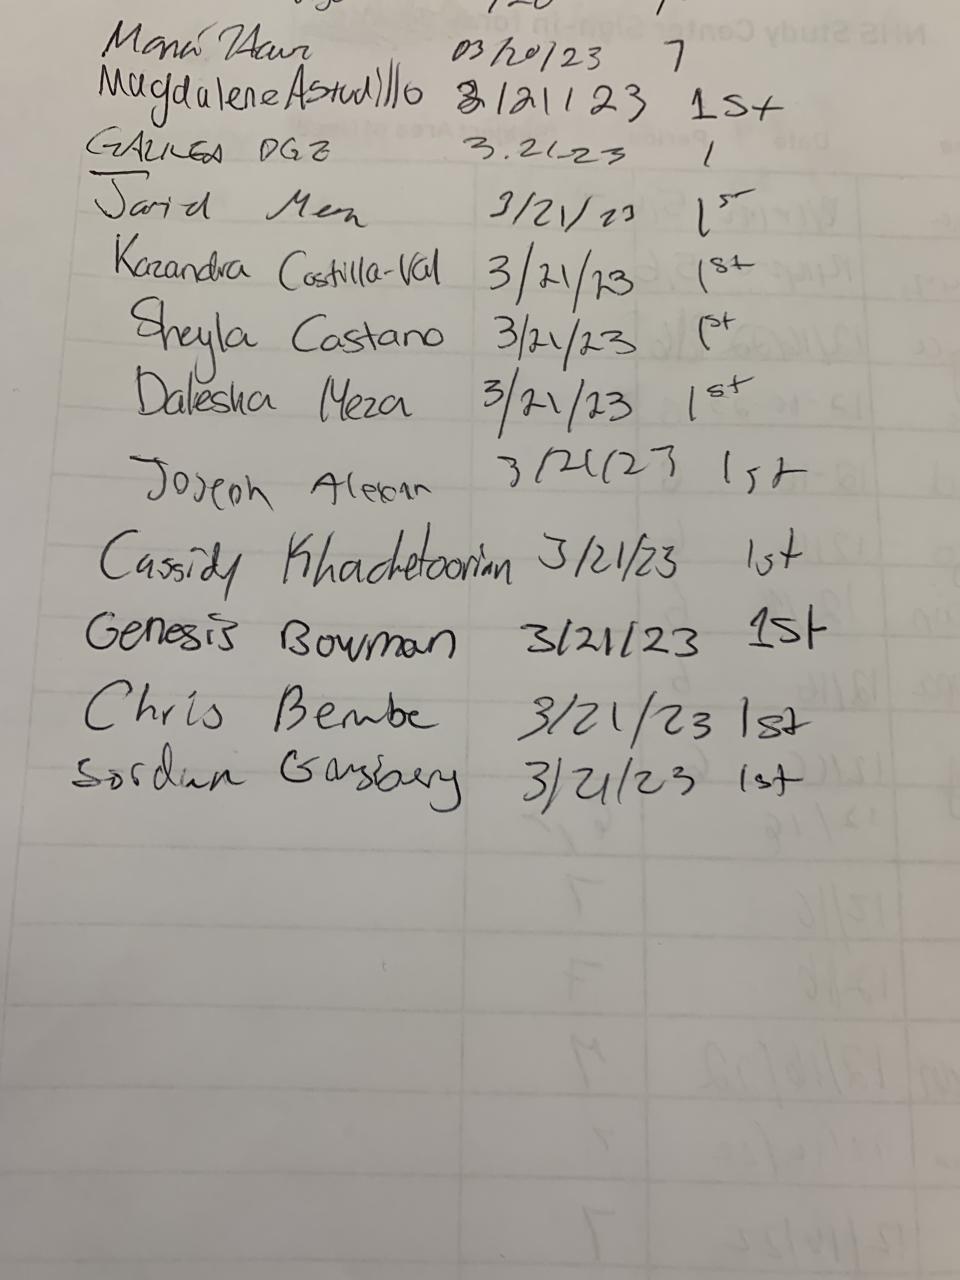 03/20/23 7
Magdalene Astudillo 3/21/23 1st
GALILEA DGZ 3.21-23 1
Jarid Men 3/21/23 1st
Kazandra Costilla-Val 3/21/23 1st
Sheyla Castano 3/21/23 1st
Dalesha Meza 3/21/23 1st
Joseph 3/21/23 1st
Cassidy Khachetoorian 3/21/23 1st
Genesis Bowman 3/21/23 1st
Chris Bembe 3/21/23 1st
3/21/23 1st